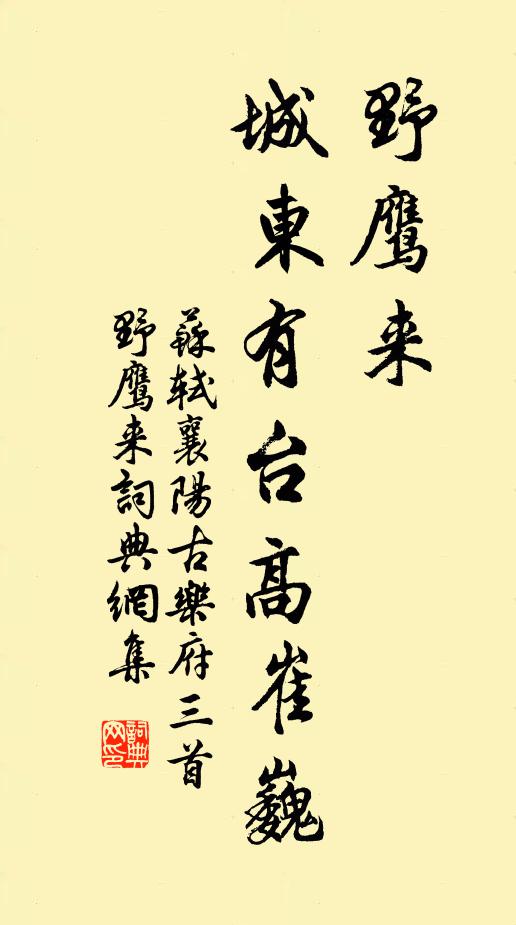 野鹰来
城東有台高崔巍
蘇軾襄陽古樂府三首
野鹰来詞典網集
詞典
网印